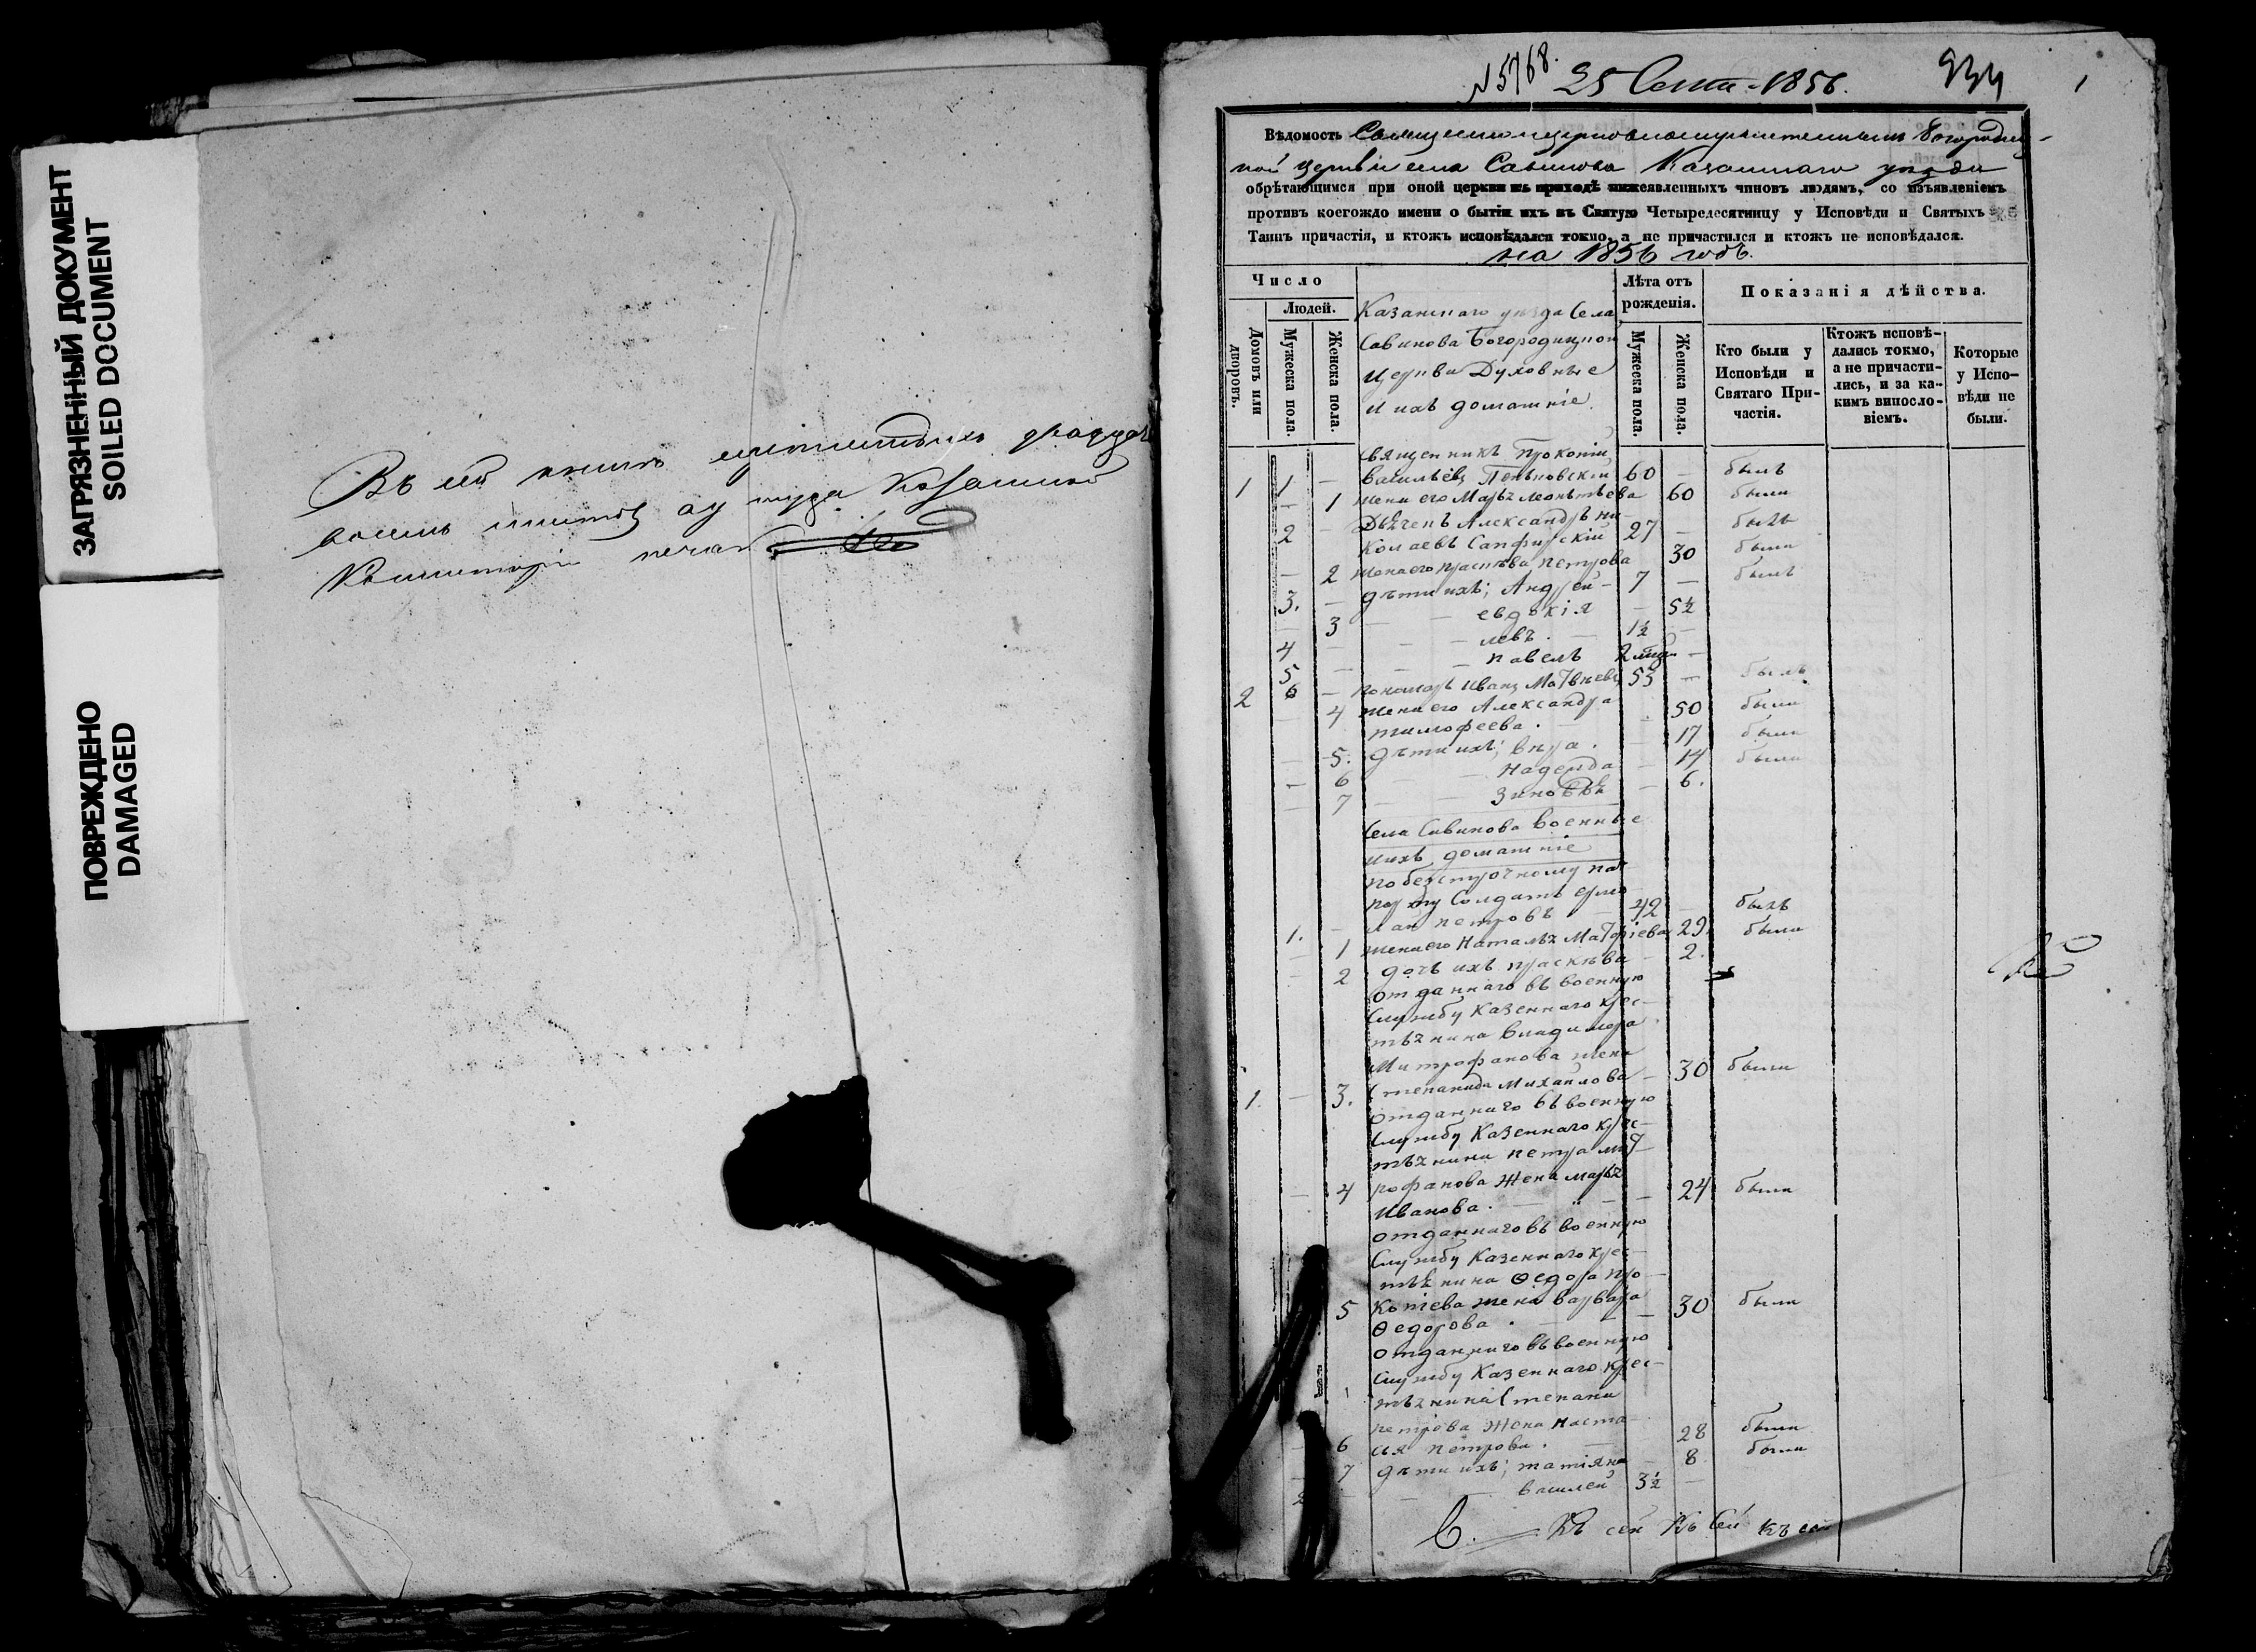 ЗАГРЯЗНЕННЫЙ ДОКУМЕНТ
SOILED DOCUMENT
ПОВРЕЖДЕНО
DAMAGED
Въ сей книгѣ
восемь листовъ
Консисторіи
№ 5768. 25 Сент. 1856. 934 1
Вѣдомость Богородиц-
кой церкви села Савинова Казанскаго уѣзда
обрѣтающимся при оной церкви въ приходѣ нижеявленныхъ чиновъ людямъ, со изъявленіемъ
противъ коегождо имени о бытіи ихъ въ Святую Четыредесятницу у Исповѣди и Святыхъ
Таинъ причастія, и ктожъ исповѣдался токмо, а не причастился и ктожъ не исповѣдался.
на 1856 годъ.
Число
Людей.
Домовъ или дворовъ.
Мужеска пола.
Женска пола.
Лѣта отъ рожденія.
Мужеска пола.
Женска пола.
Показанія дѣйства.
Кто были у Исповѣди и Святаго Причастія.
Ктожъ исповѣ-
дались токмо,
а не причасти-
лись, и за ка-
кимъ виносло-
віемъ.
Которые
у Испо-
вѣди не
были.
Казанскаго уѣзда Села
Савинова Богородицкой
Церкви Духовные
и ихъ домашніе.
Священникъ Прокопій
1 1 — Васильевъ 60 — былъ
— 1 жена его Марья Леонтьева 60 была
Дьячекъ Александръ Ни-
2 — колаевъ Сапфирскій 27 — былъ
— 2 жена его Прасковья Петрова 30 была
3. — дѣти ихъ; Андрей — 7 — былъ
3 — — Евдокія — 5½
4 — — левъ. — 1½ —
5 — — павелъ 2 —
2 6 — пономарь Иванъ Матвѣевъ 53 — былъ
— 4 жена его Александра 50 была
тимофеева.
— 5. дѣти ихъ; вѣра. — 17 была
— 6 — Надежда — 14 была
— 7 — Зиновья — 6.
Села Савинова Военные
и ихъ домашніе
по безсрочному пас-
порту Солдатъ Ермо-
1. — лай петровъ — 42 — былъ
— 1 жена его Наталья 29. была
— 2 дочь ихъ прасковья — 2.
отданнаго въ военную
Службу Казеннаго крес-
тьянина Владимера
Митрофанова жена
1. — 3. Степанида Михайлова — 30 была
отданнаго въ военную
Службу Казеннаго крес-
тьянина петра мит-
— 4 рофанова жена марья
Иванова. — — 24 была
отданнаго въ военную
Службу Казеннаго крес-
тьянина Ѳедора про-
5 копіева жена варвара 30 была
Ѳедорова.
отданнаго въ военную
Службу Казеннаго крес-
тьянина Степана
петрова жена наста-
— 6 сія петрова. 28 была
— 7 дѣти ихъ; татіяна — 8 была
2 — — василей 3½ —